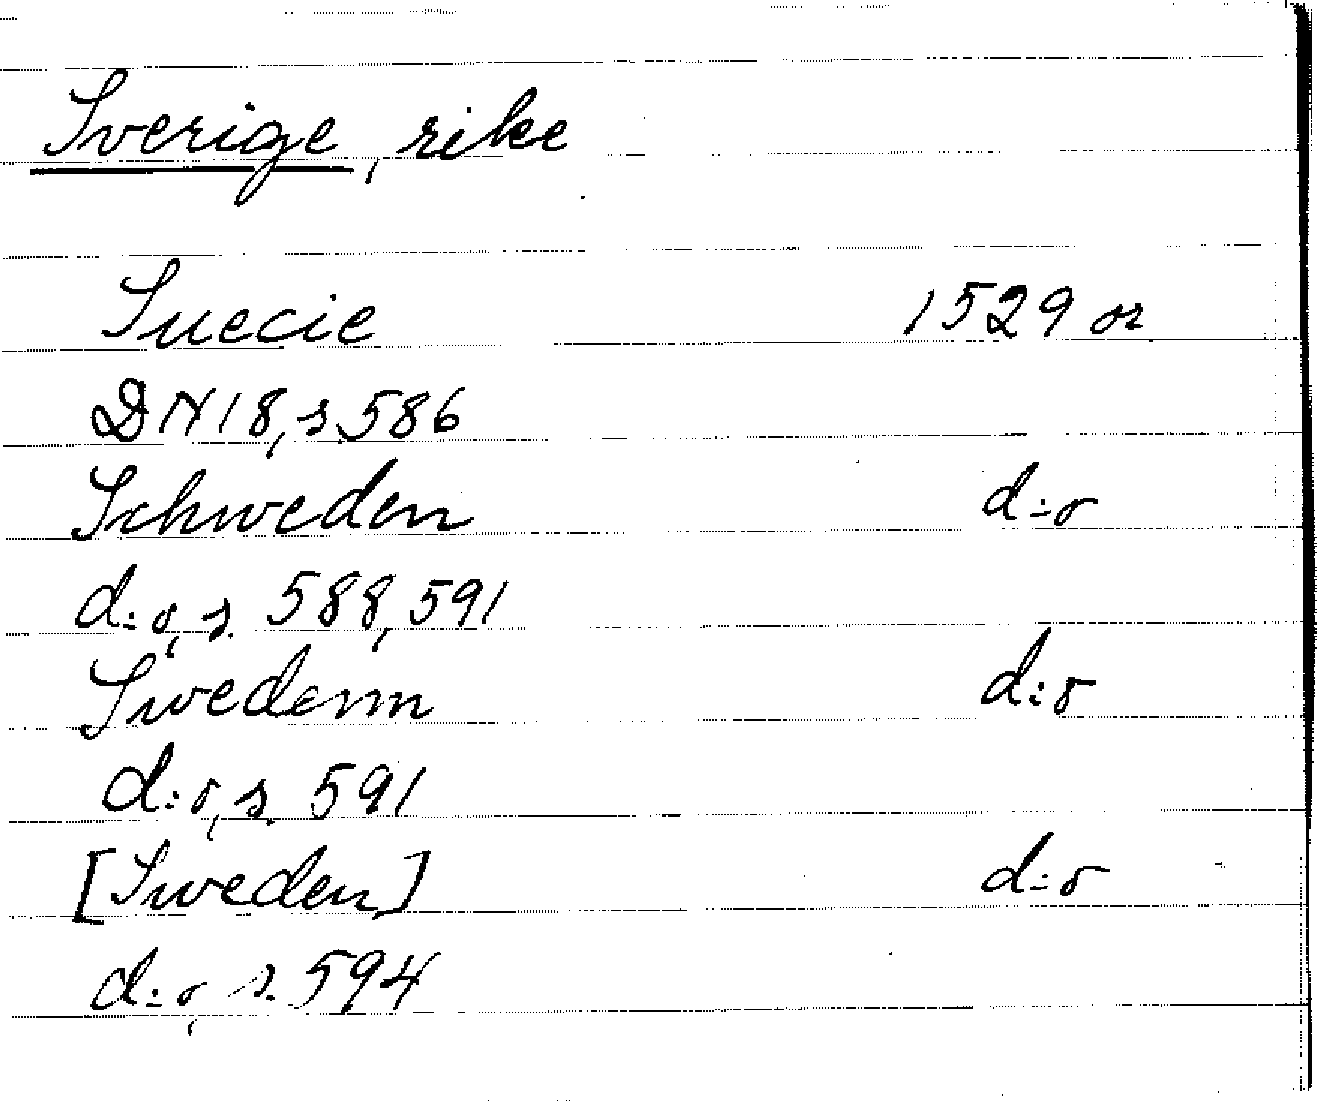 Sverige, rike
Suecie 1529 or
DN 18, s. 586
Schweden d:o
d:o, s. 588, 591
Swedenn d:o
d:o, s. 591
[Sweden] d:o
d:o, s. 594